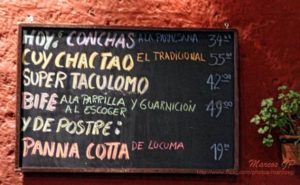 HOY: CONCHAS A LA PARMESANA 34.00
CUY CHACTAO EL TRADICIONAL 55.00
SUPER TACULOMO 42.00
BIFE A LA PARRILLA Y GUARNICIÓN AL ESCOGER 49.00
Y DE POSTRE:
PANNA COTTA DE LUCUMA 19.00
Marcos GP